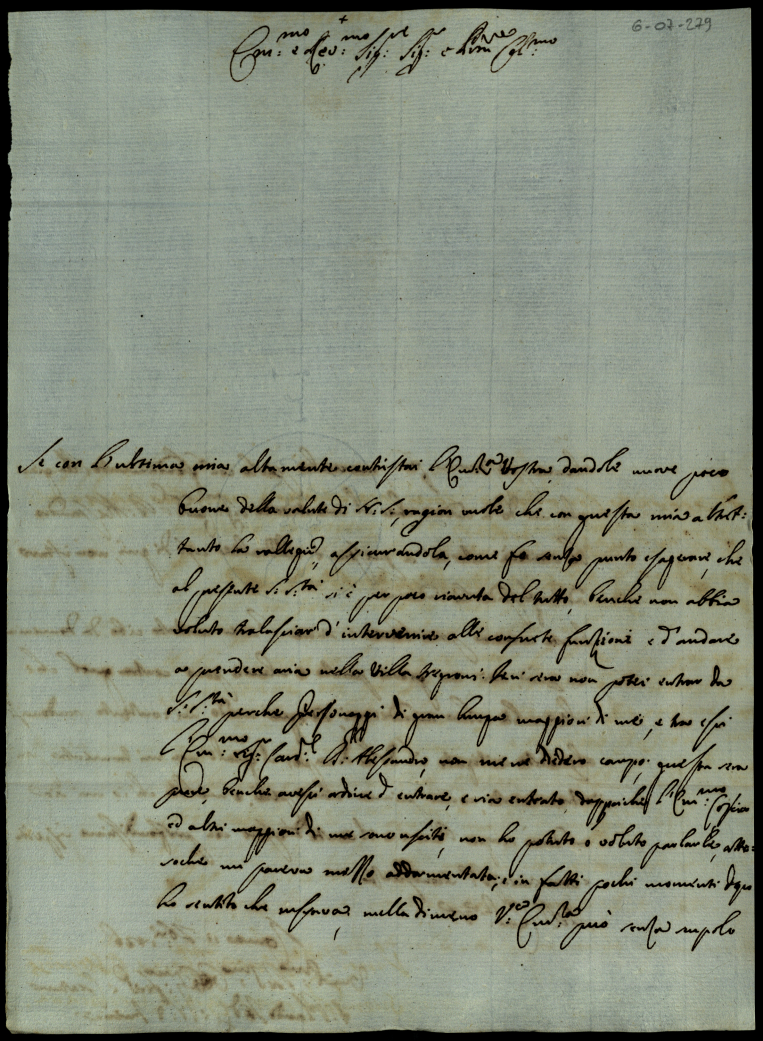 6-07-279
Em:mo e Rev:mo Sig:r Sig:r e
Se con l'ultima mia altamente contristai l'Em:za Vostra, dandole nuove poco
buone della salute di N:S:, ragion vuole che con questa mia altret:
tanto la rallegri, assicurandola, come fo senza punto esagerare, che
al presente S: S:tà si è per poco riavuta del tutto, benche non abbia
voluto tralasciar d'intervenire alle consuete funzioni e d'andare
a prendere aria nella Villa Negroni. Ieri sera non potei entrar da
S: S:tà perche Personaggi di gran lunga maggiori di me, e tra essi
l'Em:mo Sig:r Card:l Alessandro, non me ne diedero campo; questa sera
però, benche avessi ordine d'entrare, e sia entrato, doppoiche l'Em:mo
ed altri maggiori di me sono usciti, non ho potuto o voluto parlarle, atte:
soche mi pareva mezzo addormentata, e in fatti pochi momenti dopo
ho sentito che nella di meno V:ra Em:za può senza